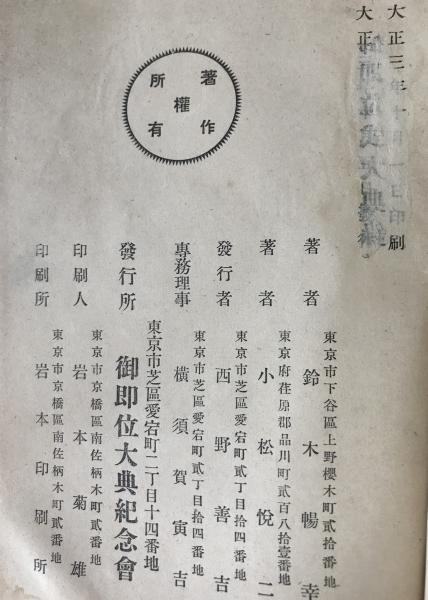 大正三年十月一日印刷
大正
御即位大典
著作
權
所有
東京市下谷區上野櫻木町貳拾番地
著者 鈴木暢幸
東京府荏原郡品川町貳百八拾壹番地
著者 小松悅二
東京市芝區愛宕町貳丁目拾四番地
發行者 西野善吉
東京市芝區愛宕町貳丁目拾四番地
專務理事 橫須賀寅吉
東京市芝區愛宕町二丁目十四番地
發行所 御即位大典紀念會
東京市京橋區南佐柄木町貳番地
印刷人 岩本菊雄
東京市京橋區南佐柄木町貳番地
印刷所 岩本印刷所